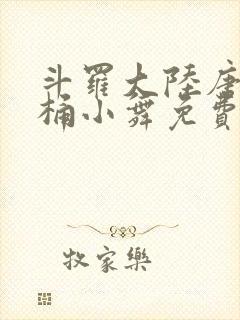 斗羅大陸唐
桶小舞免費
牧家樂